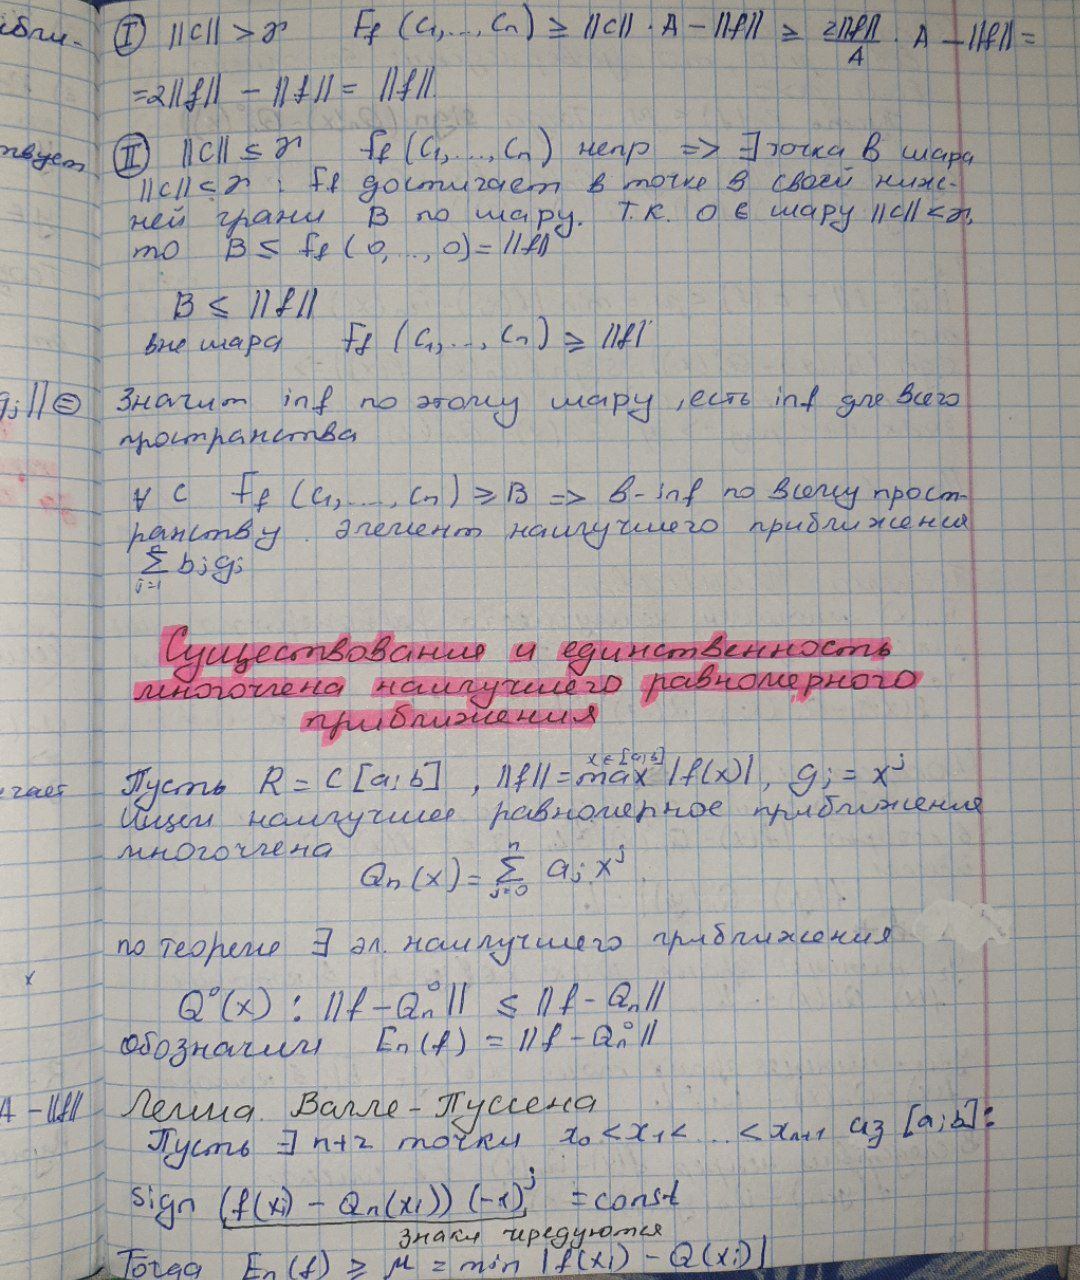 ибли-
I ||C|| > r F_f (C₁,...,Cₙ) ≥ ||C|| · A - ||f|| ≥ 2||f||/A · A - ||f|| =
= 2||f|| - ||f|| = ||f||.
твует
II ||C|| ≤ r F_f (C₁,...,Cₙ) непр => ∃ точка B шара
||C|| ≤ r : F_f достигает в точке B своей ниж-
ней грани B по шару. Т.к. 0 ∈ шару ||C|| < r,
то B ≤ F_f (0,...,0) = ||f||
B ≤ ||f||
вне шара F_f (C₁,...,Cₙ) ≥ ||f||
g_j|| =
Значит inf по этому шару, есть inf для всего
пространства
∀ C F_f (C₁,...,Cₙ) ≥ B => B - inf по всему прост-
ранству. элемент наилучшего приближения
∑ⁿ_{j=1} b_j g_j
Существование и единственность
многочлена наилучшего равномерного
приближения
чает
Пусть R = C [a;b], ||f|| = max_{x∈[a;b]} |f(x)|, g_j = x^j
Ищем наилучшее равномерное приближение
многочлена
Qₙ(x) = ∑ⁿ_{j=0} a_j x^j
по теореме ∃ эл. наилучшего приближения
x
Q⁰(x) : ||f - Qₙ⁰|| ≤ ||f - Qₙ||
обозначим Eₙ(f) = ||f - Qₙ⁰||
A - ||f||
Лемма. Валле-Пуссена
Пусть ∃ n+2 точки x₀ < x₁ < ... < xₙ₊₁ из [a;b]:
sign (f(x_i) - Qₙ(x_i)) (-1)^j = const
знаки чередуются
Тогда Eₙ(f) ≥ μ = min |f(x_i) - Q(x_i)|